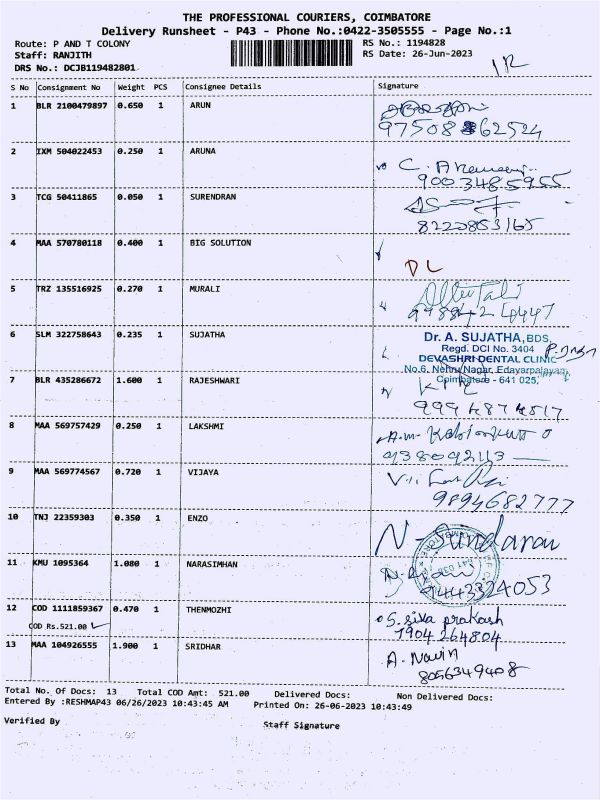 THE PROFESSIONAL COURIERS, COIMBATORE
Delivery Runsheet - P43 - Phone No.:0422-3505555 - Page No.:1
Route: P AND T COLONY
RS No.: 1194828
Staff: RANJITH
RS Date: 26-Jun-2023
DRS No.: DCJB119482801
S No Consignment No Weight PCS Consignee Details Signature
1 BLR 2100479897 0.650 1 ARUN
97508 62524
2 IXM 504022453 0.250 1 ARUNA
C.
9003485955
3 TCG 50411865 0.050 1 SURENDRAN
8220853165
4 MAA 570780118 0.400 1 BIG SOLUTION
DL
5 TRZ 135516925 0.270 1 MURALI
6 SLM 322758643 0.235 1 SUJATHA
Dr. A. SUJATHA, BDS
Regd. DCI No. 3404
DEVASHRI DENTAL CLINIC
No.6, Nehru Nagar, Edayarpalayam,
Coimbatore - 641 025.
7 BLR 435286672 1.600 1 RAJESHWARI
999 4874817
8 MAA 569757429 0.250 1 LAKSHMI
A.m.
938092113
9 MAA 569774567 0.720 1 VIJAYA
9894682777
10 TNJ 22359303 0.350 1 ENZO
N-Sundaran
11 KMU 1095364 1.080 1 NARASIMHAN
9443324053
12 COD 1111859367 0.470 1 THENMOZHI
COD Rs.521.00
S. siva prakash
7904264804
13 MAA 104926555 1.900 1 SRIDHAR
A. Navin
8056349408
Total No. Of Docs: 13 Total COD Amt: 521.00 Delivered Docs: Non Delivered Docs:
Entered By :RESHMAP43 06/26/2023 10:43:45 AM Printed On: 26-06-2023 10:43:49
Verified By
Staff Signature